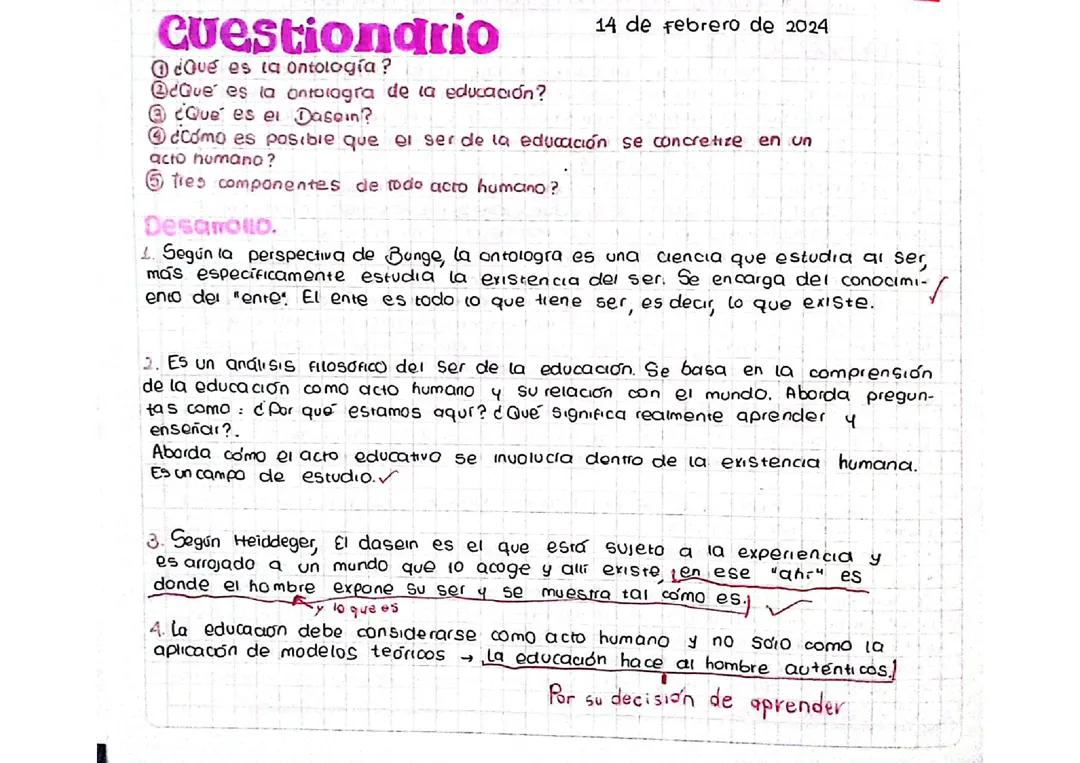 Cuestionario
14 de febrero de 2024
① ¿Qué es la ontología?
② ¿Qué es la ontología de la educación?
③ ¿Qué es el Dasein?
④ ¿Cómo es posible que el ser de la educación se concretize en un
acto humano?
⑤ Tres componentes de todo acto humano?
Desarrollo.
1. Según la perspectiva de Bunge, la ontología es una ciencia que estudia al ser,
más específicamente estudia la existencia del ser. Se encarga del conocimi-
ento del "ente". El ente es todo lo que tiene ser, es decir, lo que existe.
2. Es un análisis filosófico del ser de la educación. Se basa en la comprensión
de la educación como acto humano y su relación con el mundo. Aborda pregun-
tas como: ¿Por qué estamos aquí? ¿Qué significa realmente aprender y
enseñar?.
Aborda cómo el acto educativo se involucra dentro de la existencia humana.
Es un campo de estudio.
3. Según Heiddeger, El dasein es el que está sujeto a la experiencia y
es arrojado a un mundo que lo acoge y allí existe, en ese "ahí" es
donde el hombre expone su ser y se muestra tal cómo es.
y lo que es
4. La educación debe considerarse como acto humano y no sólo como la
aplicación de modelos teóricos → La educación hace al hombre auténticos.
Por su decisión de aprender